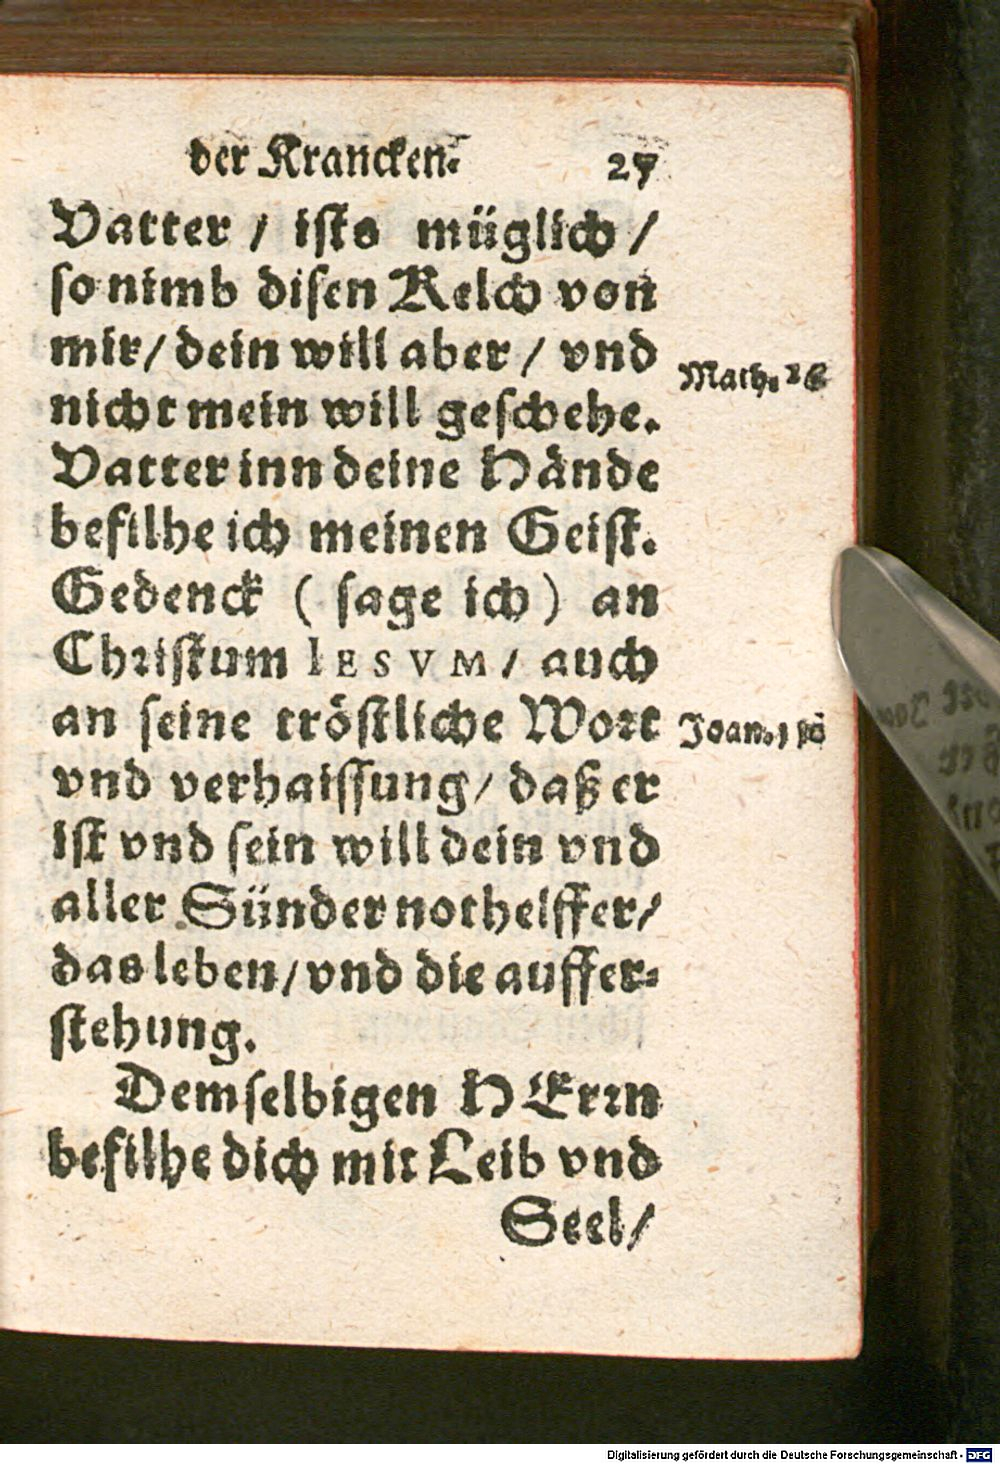 der Krancken. 27
Vatter / ists müglich /
so nimb disen Kelch von
mir / dein will aber / vnd
Math. 26
nicht mein will geschehe.
Vatter inn deine Hände
befilhe ich meinen Geist.
Gedenck ( sage ich ) an
Christum IESVM / auch
an seine tröstliche Wort
Joan.
vnd verhaissung / daß er
ist vnd sein will dein vnd
aller Sünder nothelffer /
das leben / vnd die auffer-
stehung.
Demselbigen HErrn
befilhe dich mit Leib vnd
Seel /
Digitalisierung gefördert durch die Deutsche Forschungsgemeinschaft - DFG